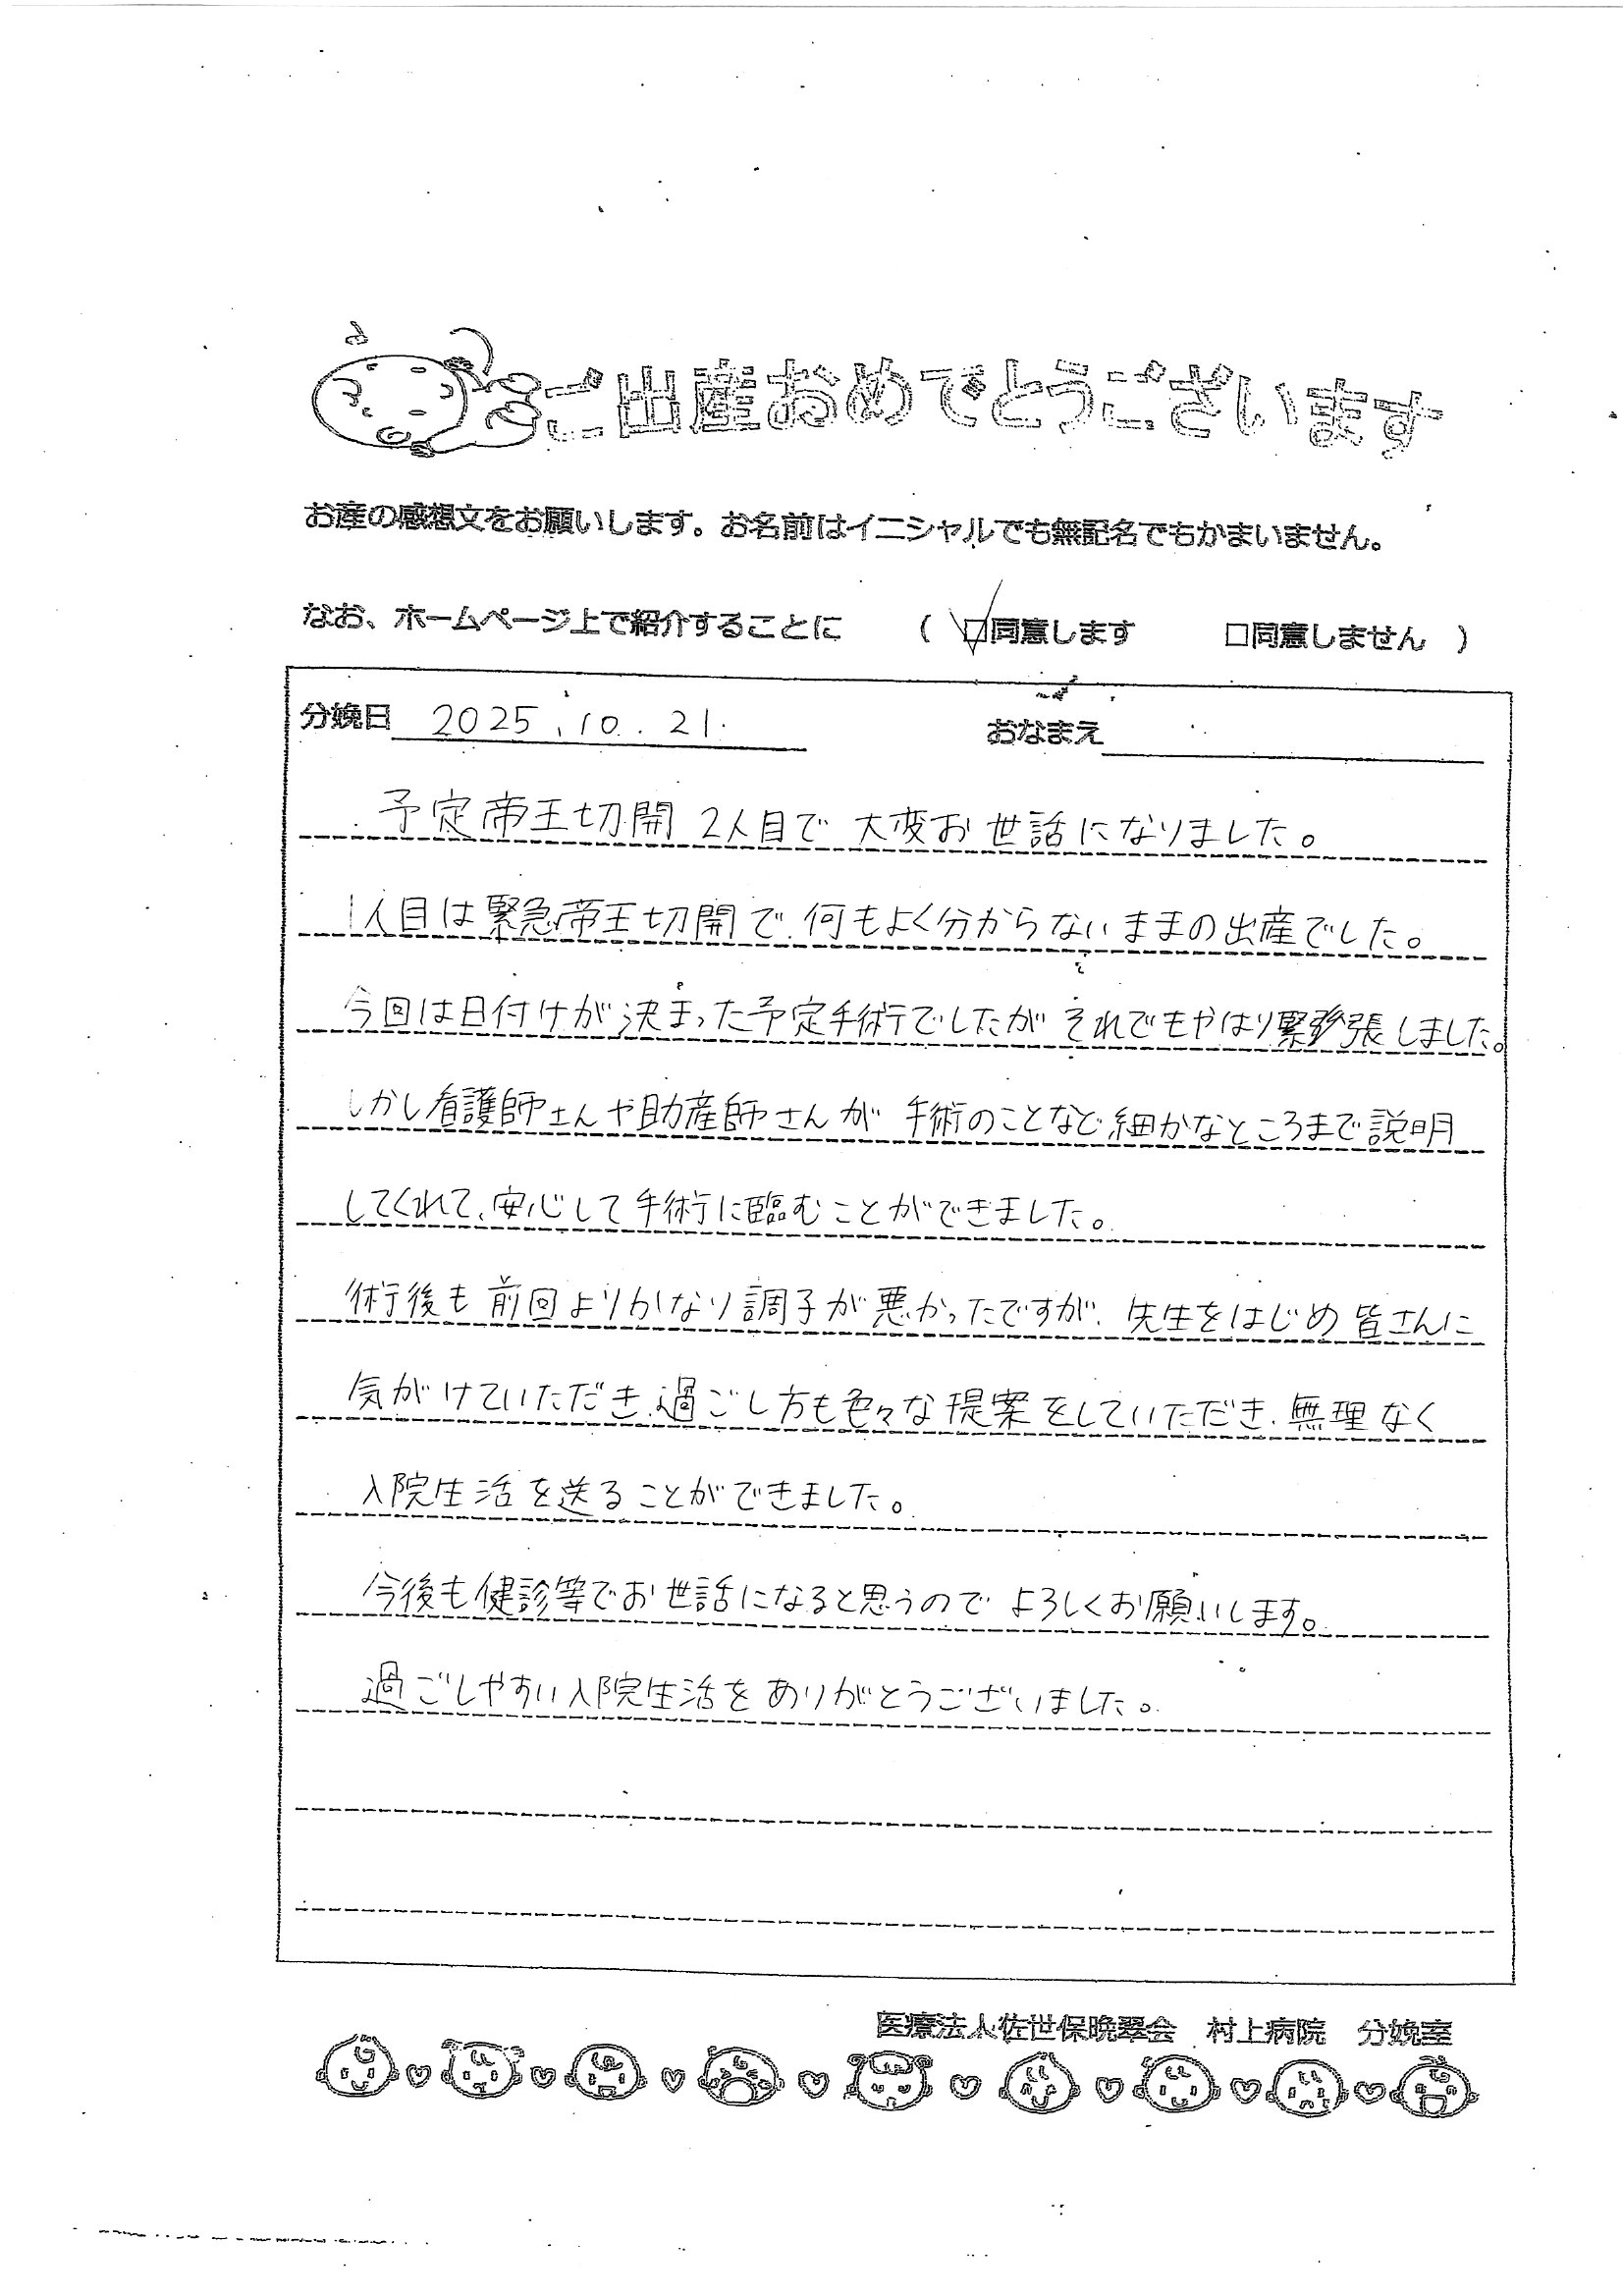 ご出産おめでとうございます
お産の感想文をお願いします。お名前はイニシャルでも無記名でもかまいません。
なお、ホームページ上で紹介することに （ ☑同意します □同意しません ）
分娩日 2025.10.21. おなまえ
予定帝王切開 2人目で 大変お世話になりました。
1人目は緊急帝王切開で、何もよく分からないままの出産でした。
今回は日付けが決まった予定手術でしたが それでもやはり緊張しました。
しかし看護師さんや助産師さんが 手術のことなど細かなところまで説明
してくれて、安心して手術に臨むことができました。
術後も前回よりかなり調子が悪かったですが、先生をはじめ皆さんに
気がけていただき、過ごし方も色々な提案をしていただき、無理なく
入院生活を送ることができました。
今後も健診等でお世話になると思うので よろしくお願いします。
過ごしやすい入院生活をありがとうございました。
医療法人佐世保晩翠会 村上病院 分娩室